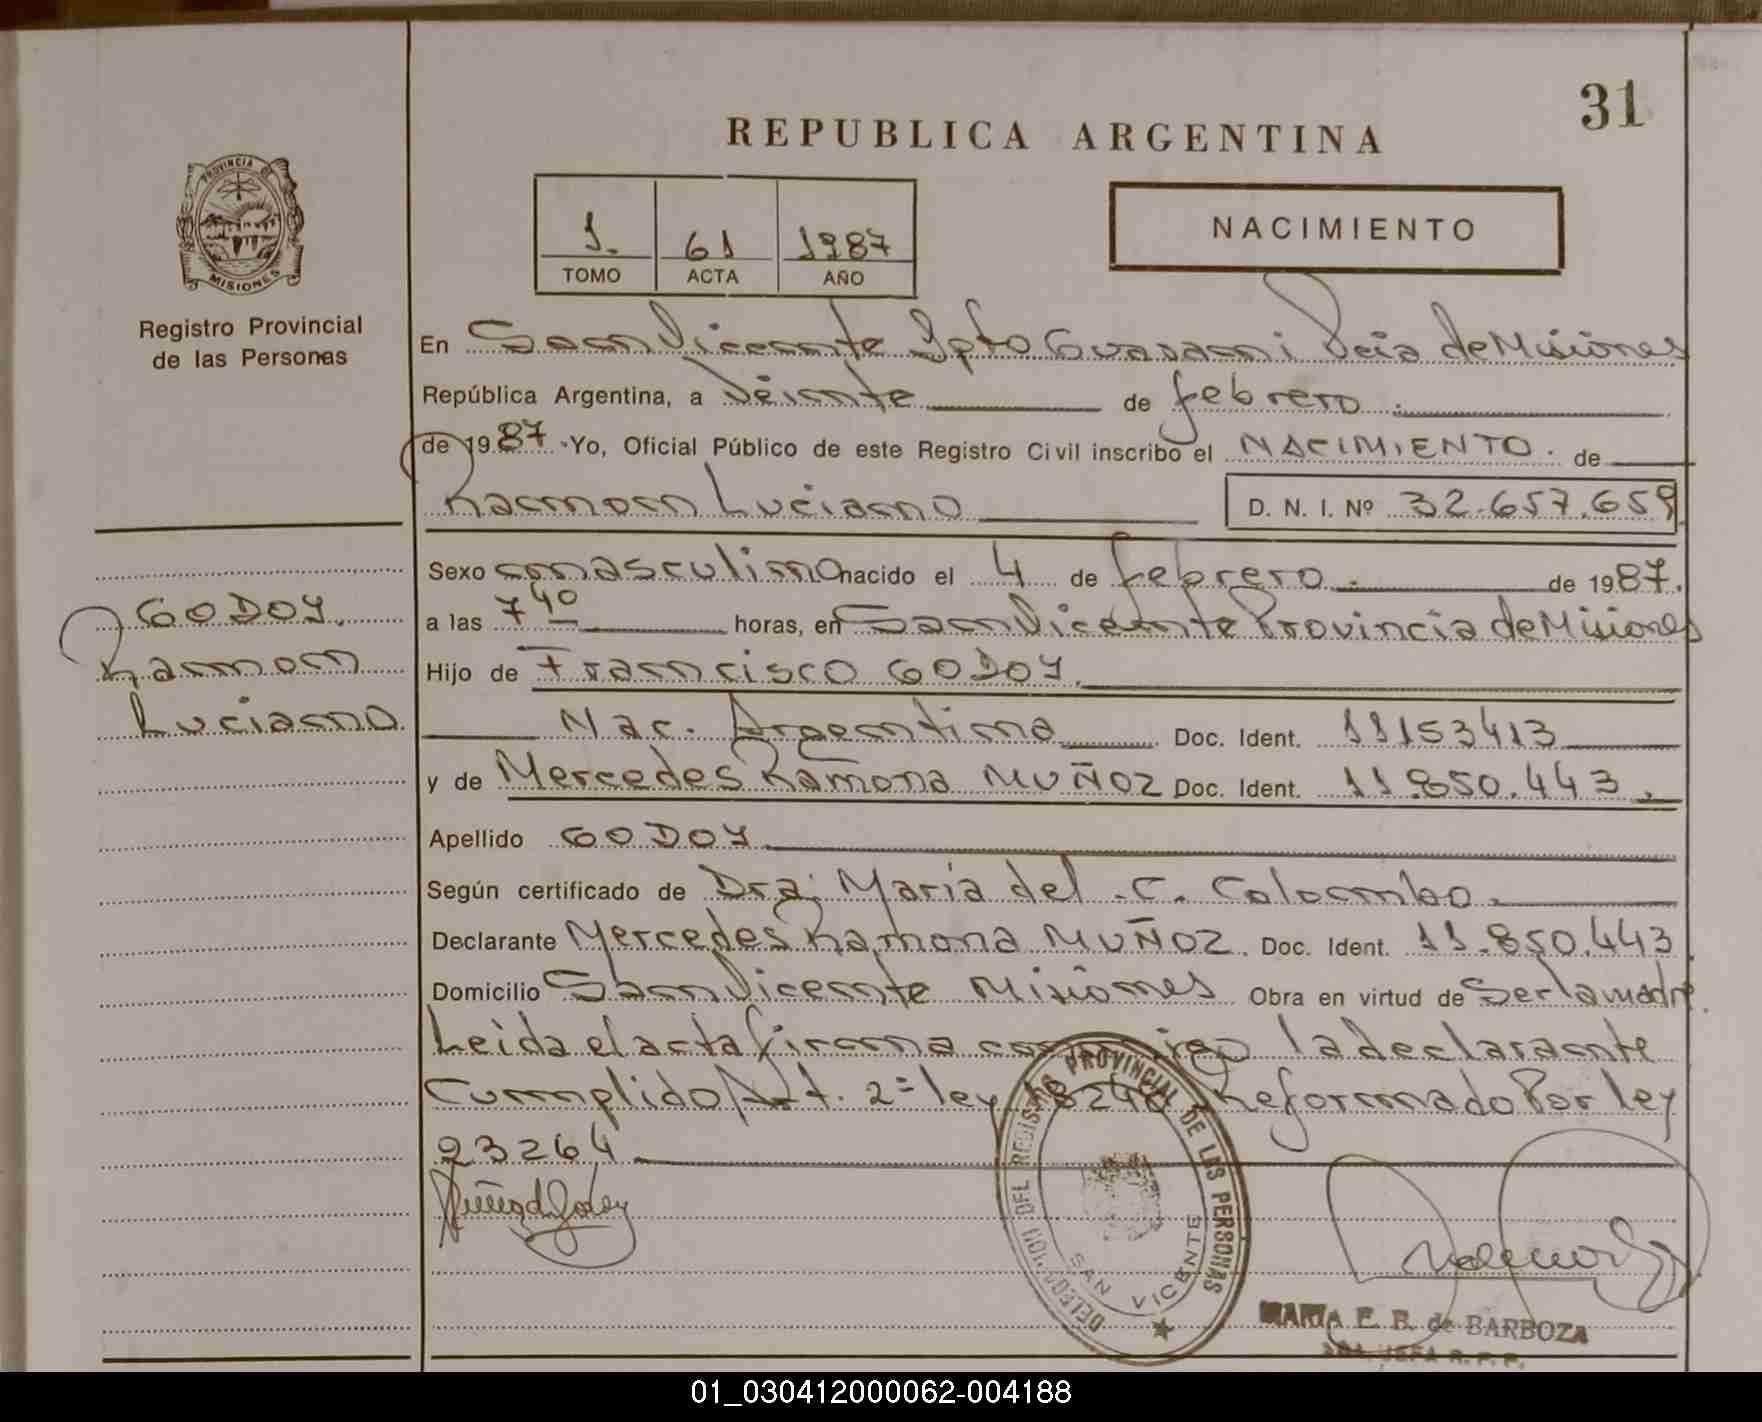 31
REPUBLICA ARGENTINA
PROVINCIA DE
MISIONES
Registro Provincial
de las Personas
1. 61 1987
TOMO ACTA AÑO
NACIMIENTO
En San Vicente Dpto Guarani Pcia de Misiones
República Argentina, a Veinte de febrero.
de 1987 -Yo, Oficial Público de este Registro Civil inscribo el NACIMIENTO. de
Ramon Luciano D. N. I. Nº 32.657.659
Sexo masculino nacido el 4 de febrero. de 1987.
a las 7 40 horas, en San Vicente Provincia de Misiones
Hijo de Francisco GODOY.
Nac. Argentina Doc. Ident. 11153413
y de Mercedes Ramona MUÑOZ Doc. Ident. 11.850.443.
Apellido GODOY
Según certificado de Dra. Maria del C. Colombo.
Declarante Mercedes Ramona MUÑOZ. Doc. Ident. 11.850.443
Domicilio San Vicente Misiones Obra en virtud de Ser la madre.
Leida el acta firma conmigo la declarante
Cumplido Art. 2= ley 18248 Reformado Por ley
23264
GODOY.
Ramon
Luciano.
DELEGACION DEL REGISTRO PROVINCIAL DE LAS PERSONAS
SAN VICENTE
MARIA E. B. de BARBOZA
JEFA R. P. P.
01_030412000062-004188